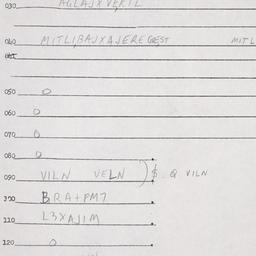 030 AGLAJXVERIL
040 MITLIBAJXAJEREGEST MITL
050 0
060 0
070 0
080 0
090 VILN VELN ) $ Q VILN
BRA+PM7
110 L3XAJIM
120 0